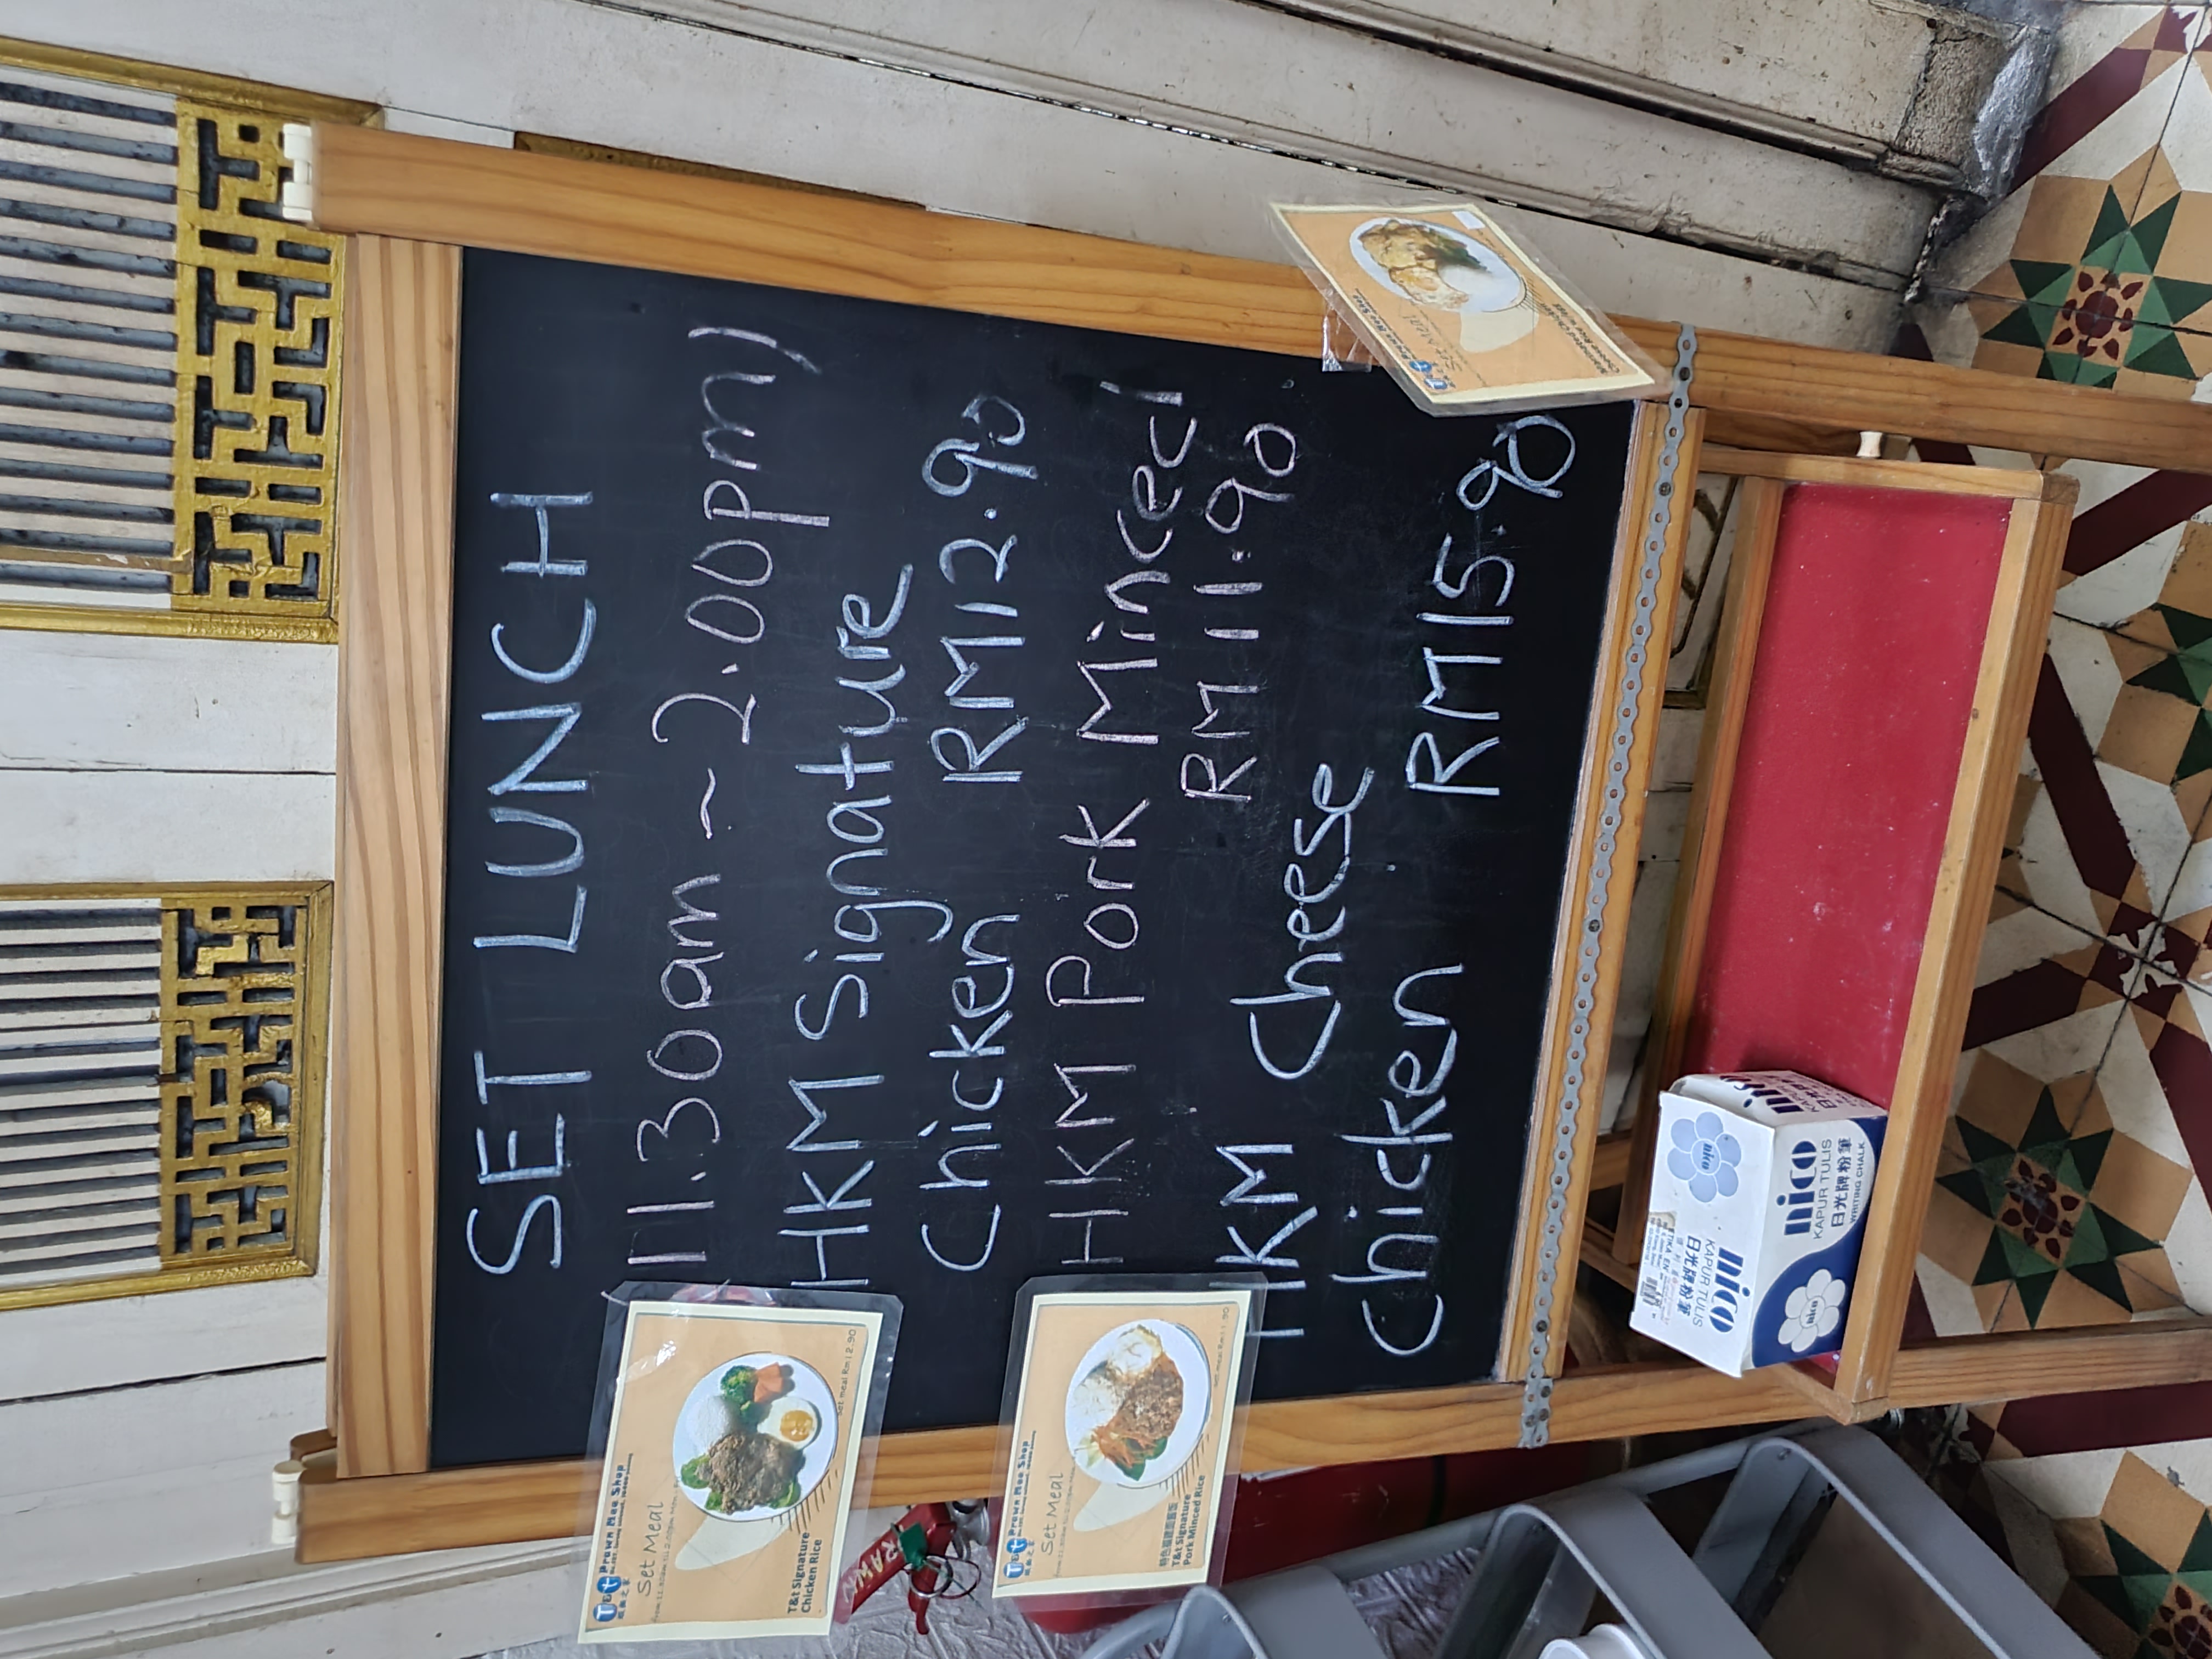 SET LUNCH
(11.30am ~ 2.00pm)
HKM Signature
Chicken RM12.90
HKM Pork Minced
RM11.90
HKM Cheese
Chicken RM15.90
T&t Prawn Mee Shop
Set Meal
set meal Rm12.90
T&t Signature
Chicken Rice
T&t Prawn Mee Shop
Set Meal
set meal Rm11.90
T&t Signature
Pork Minced Rice
Set Meal
nico
KAPUR TULIS
日光牌粉筆
nico
KAPUR TULIS
日光牌粉筆
WRITING CHALK
nico
nico